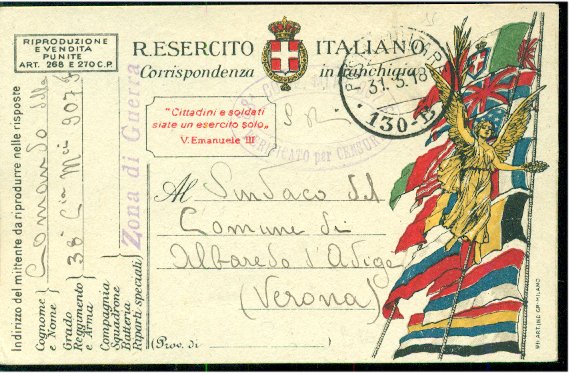 RIPRODUZIONE
E VENDITA
PUNITE
ART. 268 E 270 C.P.
R. ESERCITO ITALIANO
Corrispondenza in franchigia
"Cittadini e soldati
siate un esercito solo„
V. Emanuele III
S R.
31.5.18
130-B
VERIFICATO per CENSURA
Zona di Guerra
Al Sindaco del
Comune di
Albaredo d'Adige
(Verona)
(Prov. di
Indirizzo del mittente da riprodurre nelle risposte
Cognome e Nome
Comando della
Grado
Reggimento
e Arma
38ª Cia Mi
Compagnia
Squadrone
Batteria
Riparti speciali